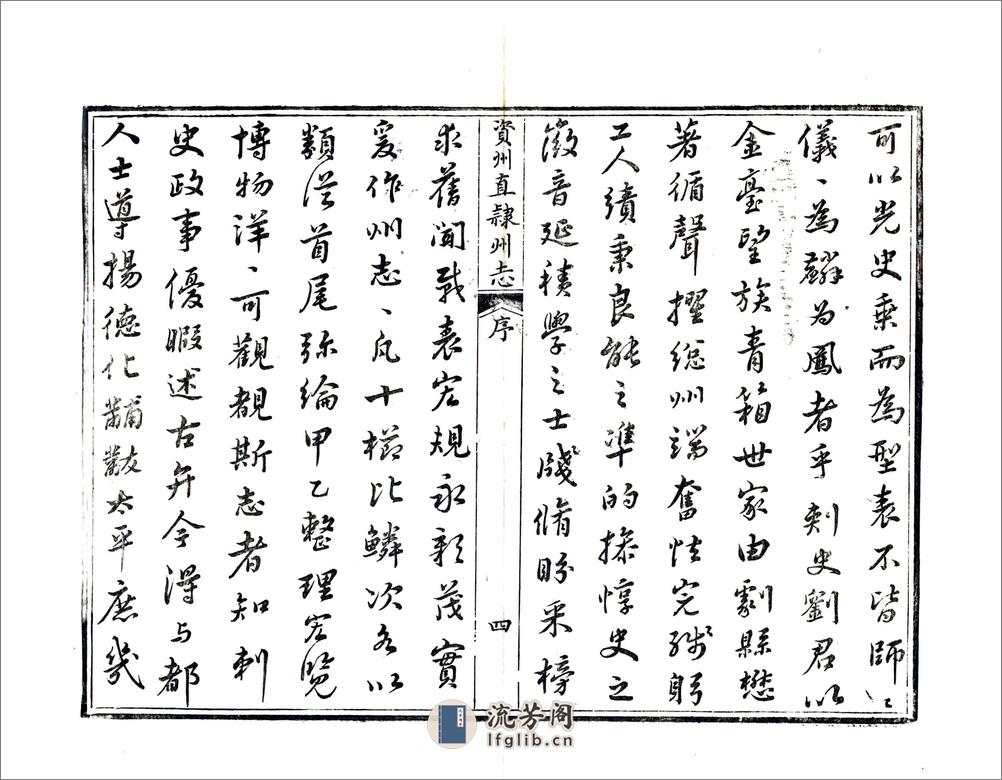 可以光史乘而為型表不皆師〻
儀〻為麟為鳳者乎刺史劉君以
金臺望族青箱世家由劇縣懋
著循聲擢總州端奮快完殘躬
工人績秉良能之準的操惇史之
徽音延積學之士牋脩盼采榜
資州直隸州志 序 四
求舊聞載表宏規永新茂實
爰作州志〻凡十櫛比鱗次各以
類從首尾弥綸甲乙整理宏覽
博物洋〻可觀覩斯志者知刺
史政事優暇述古弁今得与都
人士導揚德化黼黻太平庶幾
流芳阁
lfglib.cn